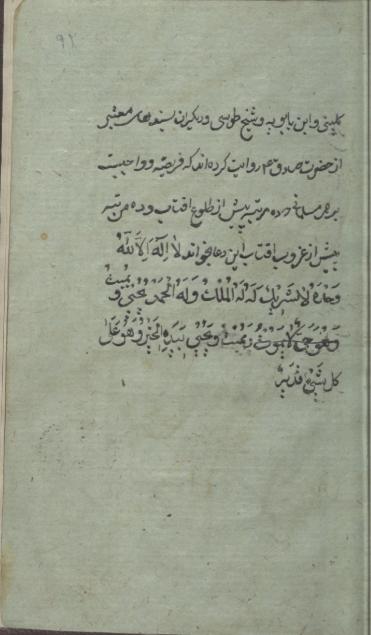 ۹۲
کلینی و ابن بابویه و شیخ طوسی و دیگران بسندهای معتبر
از حضرت صادق ع روایت کرده اند که فریضه و واجبست
بر هر مسلمانی ده مرتبه پیش از طلوع افتاب و ده مرتبه
پیش از غروب افتاب این دعا بخواند لا اله الا الله
وحده لا شریک له له الملک وله الحمد یحیی و یمیت
وهو حی لا یموت و یمیت و یحیی بیده الخیر وهو علی
کل شیئ قدیر